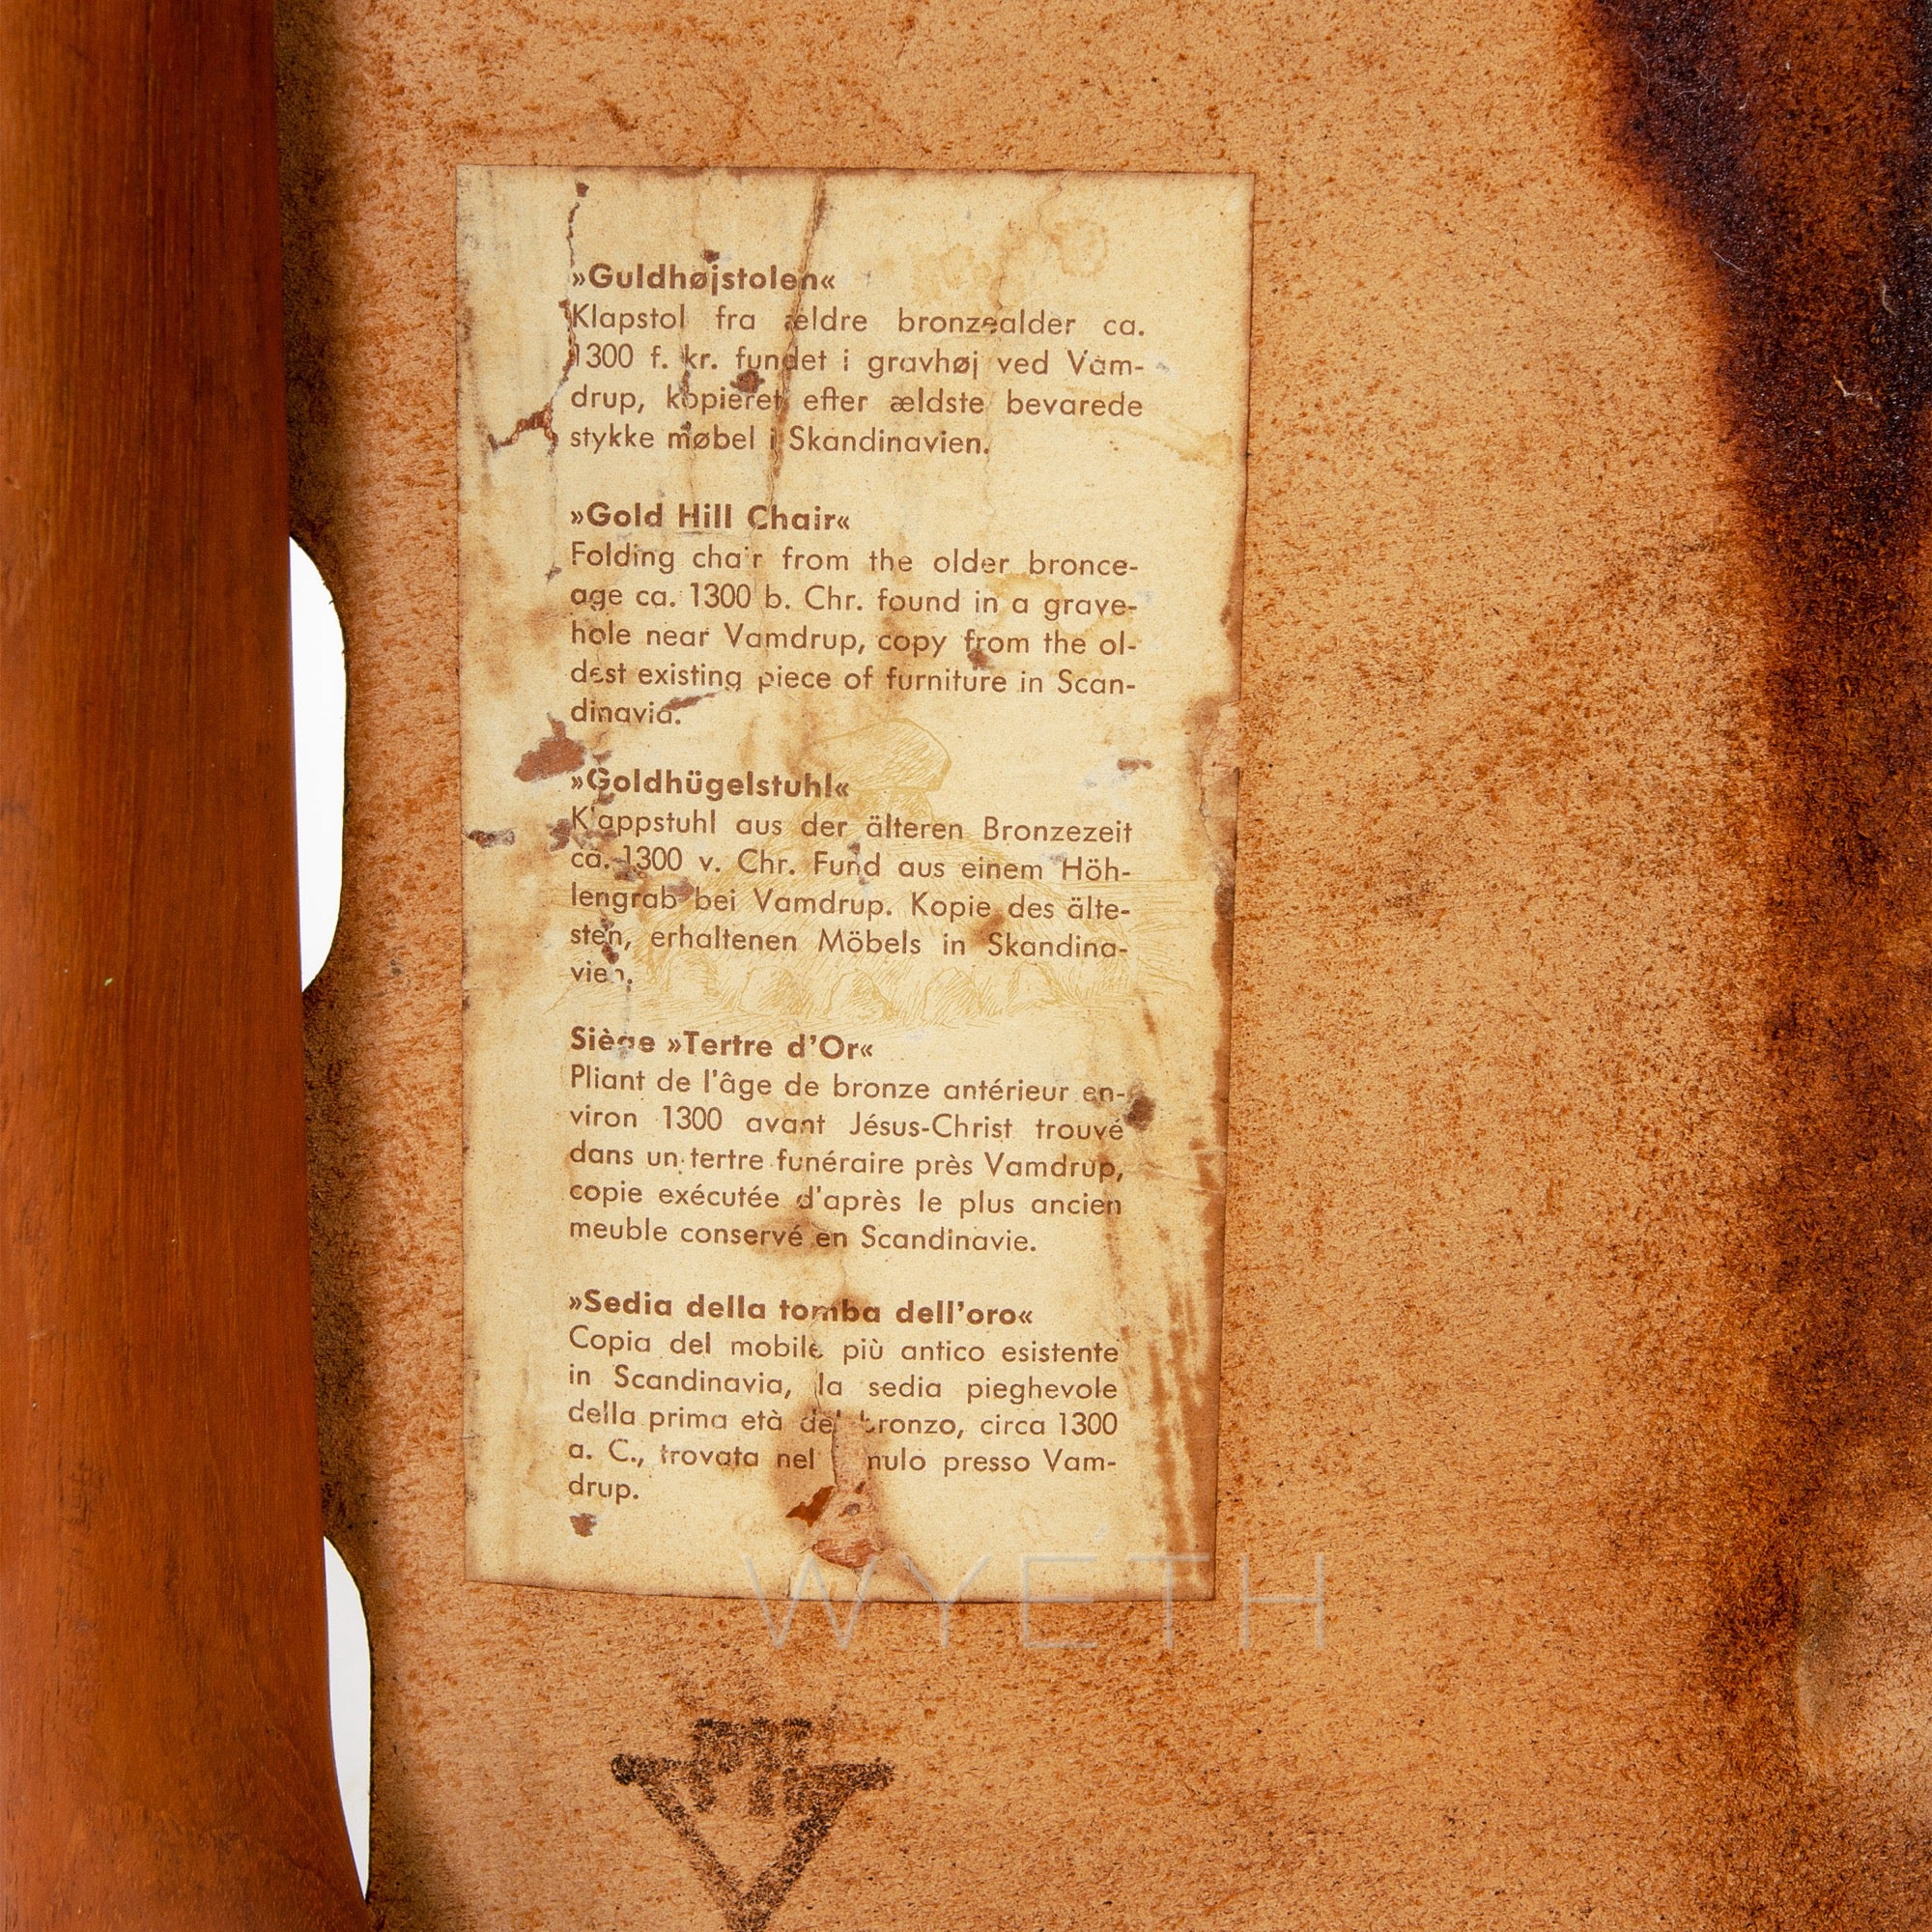 »Guldhøjstolen«
Klapstol fra ældre bronzealder ca.
1300 f. kr. fundet i gravhøj ved Vam-
drup, kopieret efter ældste bevarede
stykke møbel i Skandinavien.
»Gold Hill Chair«
Folding chair from the older bronce-
age ca. 1300 b. Chr. found in a grave-
hole near Vamdrup, copy from the ol-
dest existing piece of furniture in Scan-
dinavia.
»Goldhügelstuhl«
Klappstuhl aus der älteren Bronzezeit
ca. 1300 v. Chr. Fund aus einem Höh-
lengrab bei Vamdrup. Kopie des älte-
sten, erhaltenen Möbels in Skandina-
vien.
Siège »Tertre d'Or«
Pliant de l'âge de bronze antérieur en-
viron 1300 avant Jésus-Christ trouvé
dans un tertre funéraire près Vamdrup,
copie exécutée d'après le plus ancien
meuble conservé en Scandinavie.
»Sedia della tomba dell'oro«
Copia del mobile più antico esistente
in Scandinavia, la sedia pieghevole
della prima età del bronzo, circa 1300
a. C., trovata nel presso Vam-
drup.
WYETH